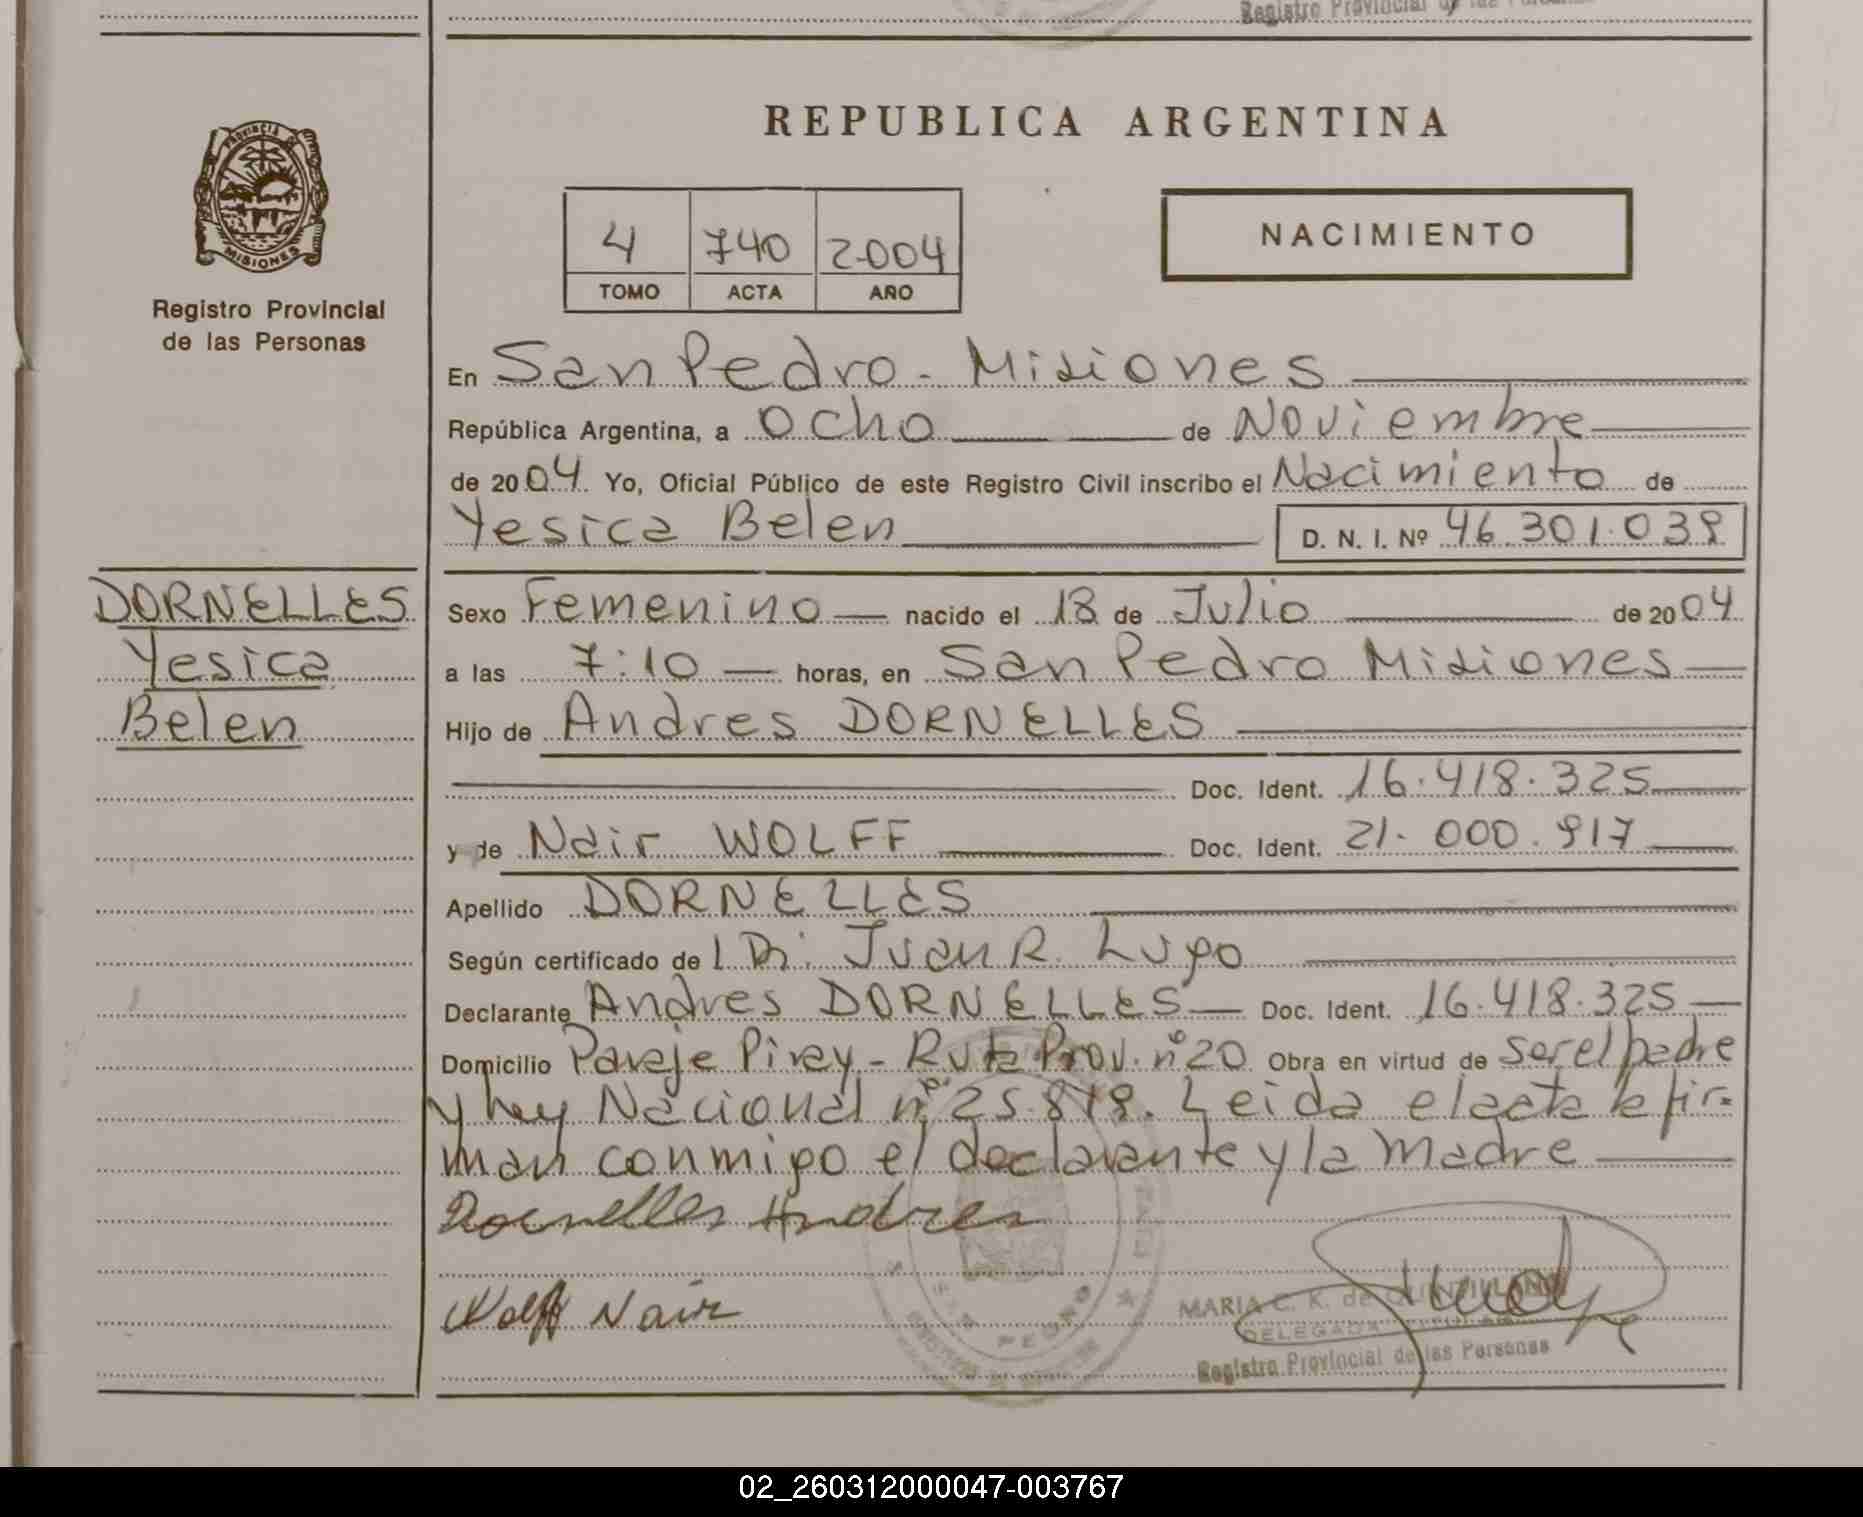 Registro Provincial de las Personas
REPUBLICA ARGENTINA
PROVINCIA DE
MISIONES
Registro Provincial
de las Personas
4 740 2004
TOMO ACTA AÑO
NACIMIENTO
En San Pedro - Misiones
República Argentina, a ocho de Noviembre
de 2004 Yo, Oficial Público de este Registro Civil inscribo el Nacimiento de
Yesica Belen D. N. I. Nº 46.301.039
DORNELLES
Yesica
Belen
Sexo Femenino nacido el 18 de Julio de 2004
a las 7:10 horas, en San Pedro Misiones
Hijo de Andres DORNELLES
Doc. Ident. 16.418.325
y de Nair WOLFF Doc. Ident. 21.000.917
Apellido DORNELLES
Según certificado de l Dr. Juan R. Lugo
Declarante Andres DORNELLES Doc. Ident. 16.418.325
Domicilio Paraje Piray - Ruta Prov. nº 20 Obra en virtud de ser el padre
y Ley Nacional nº 25.819. Leida el acta la fir=
man conmigo el declarante y la madre
Dornelles Andres
Wolff Nair
SAN PEDRO
MARIA C. K. de QUINTILLANO
DELEGADA TITULAR
Registro Provincial de las Personas
02_260312000047-003767